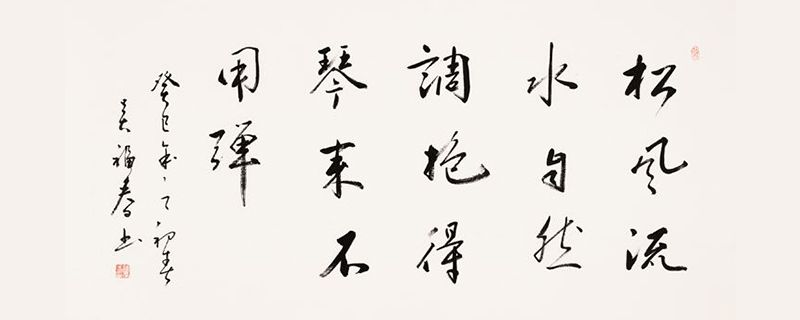 松风流
水自然
調抱得
琴来不
用彈
癸巳年初春
福春书